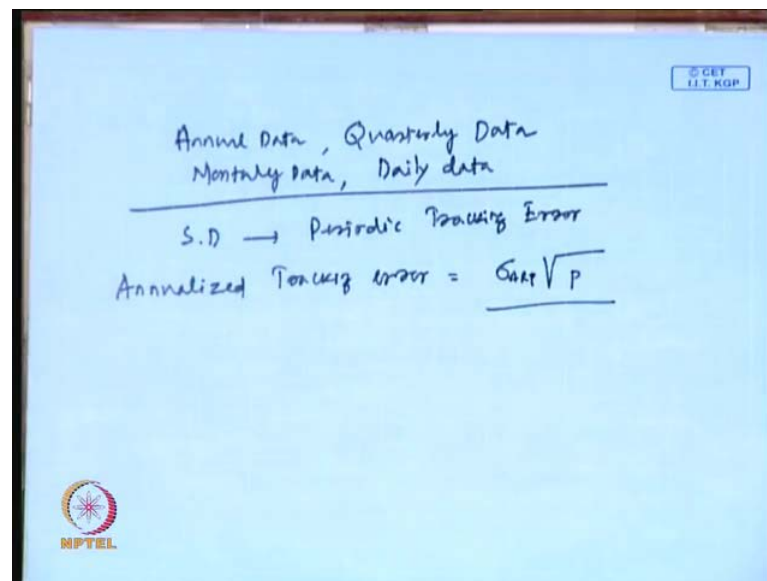 © CET
I.I.T. KGP
Annual Data, Quarterly Data
Monthly Data, Daily data
S.D → Periodic Tracking Error
Annualized Tracking error = σ_ΔRP √P
NPTEL